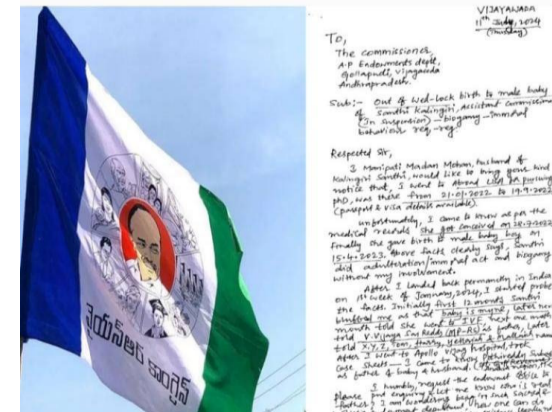 వైయస్ఆర్ కాంగ్రెస్
VIJAYAWADA
11th July, 2024
(Thursday)
To,
The commissioner,
A.P Endowments deptt,
Gollapudi, Vijayawada
Andhrapradesh.
Sub:- Out of Wed-lock birth to male baby
of Santhi Kalingiri, Assistant Commissioner
(In suspension) - biogamy - immoral
behaviour req-reg.
Respected Sir,
I Manipati Madan Mohan, husband of
Kalingiri Santhi, would like to bring your kind
notice that, I went to Abroad USA pursuing
PhD, was there from 21-01-2022 to 19-9-202
(passport & visa details available).
Unfortunately, I came to know as per the
medical records she got conceived on 28-7-2022
Finally she gave birth to male baby boy on
15-4-2023. Above facts clearly says, Santhi
did adulteration/immoral act and biogamy
without my involvement.
After I landed back permanently in India
on 1st week of January, 2024, I started probe
the facts. Initially first 12 months Santhi
me as that baby is mine, later
month told she went to IVF, next one month
told V. Vijaya Sai Reddy (MP-RS) as father, later
told X, Y, Z, Tom, Harry, &
After I went to Apollo Vizag hospital, took
Case sheets - I came to know Pothireddy Subash
as father of baby & husband.
I humbly, request the endowment office to
please put enquiry & let me know who is real
father? I am wondering being in such sacred
how one can do